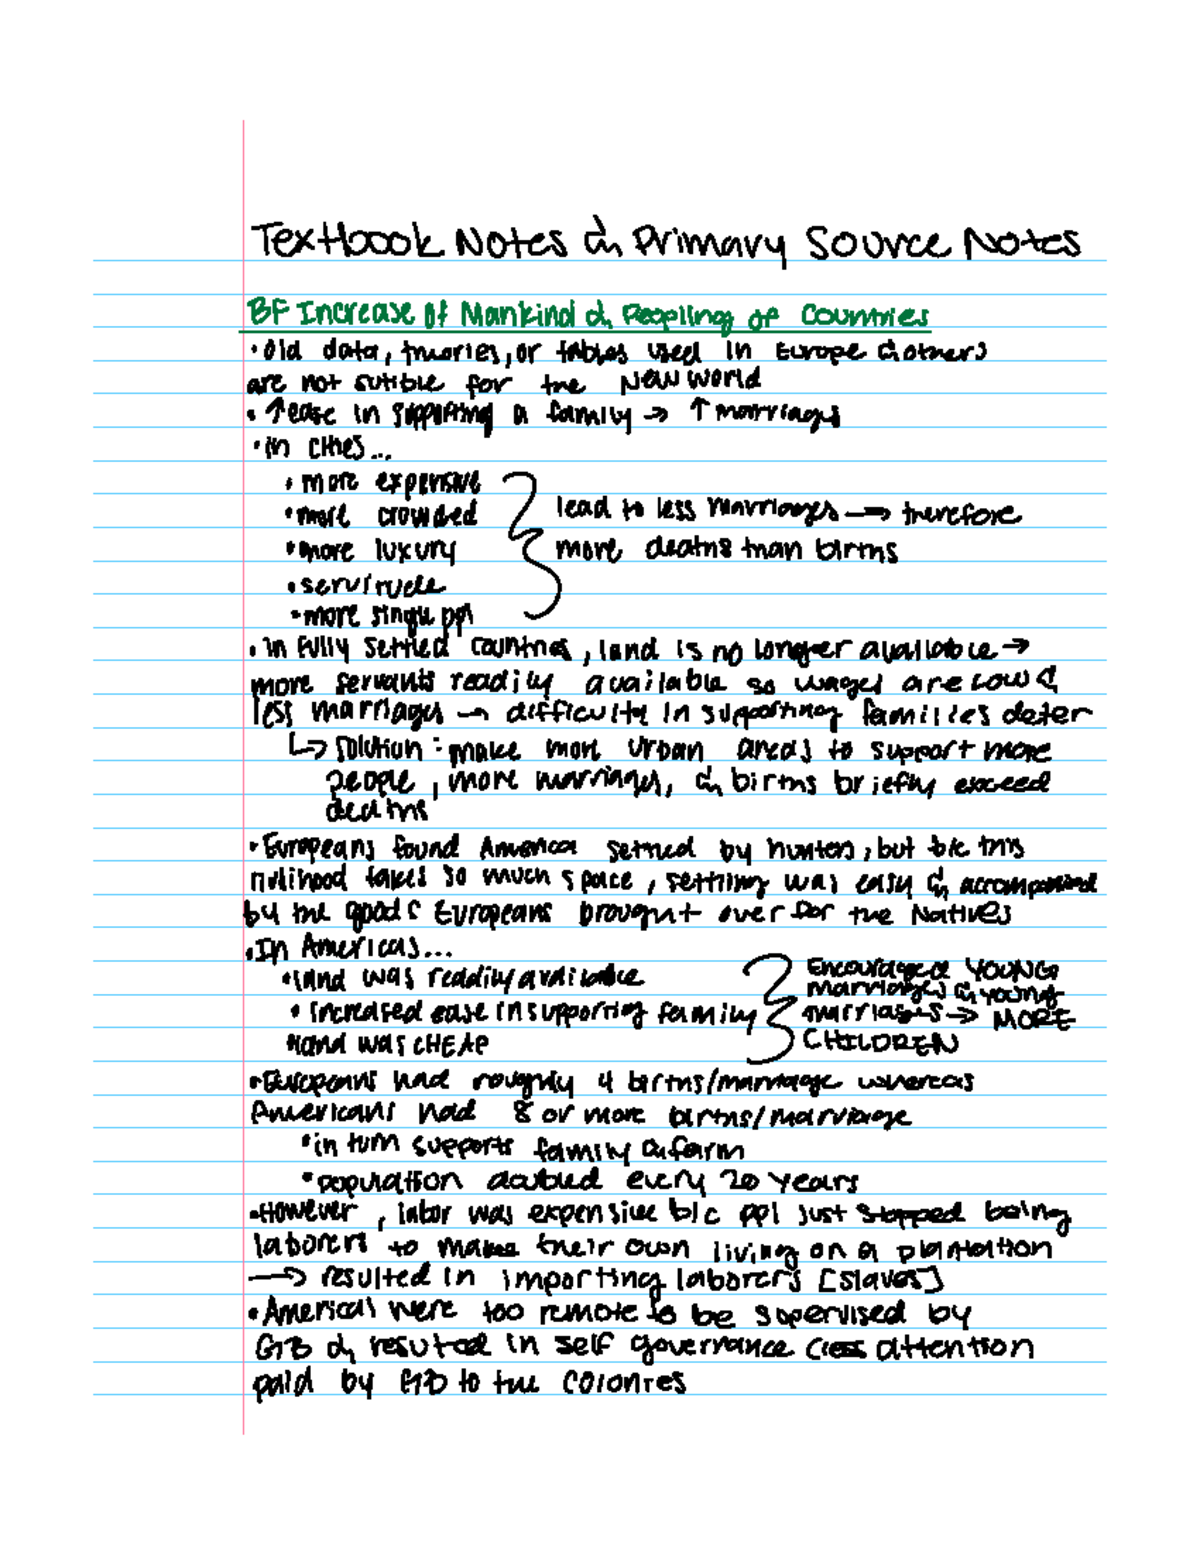 Textbook Notes & Primary Source Notes
BF Increase of Mankind & Peopling of Countries
• Old data, theories, or tables used in Europe & others
are not sutible for the New World
• ↑ease in supporting a family → ↑ marriages
• in cities...
• more expensive
• more crowded
• more luxury
• servitude
• more single ppl
lead to less marriages → therefore
more deaths than births
• in fully settled countries, land is no longer available →
more servants readily available so wages are low &
less marriages → difficulty in supporting families deter
↳ solution: make more urban areas to support more
people, more marriages, & births briefly exceed
deaths
• Europeans found America settled by hunters, but b/c this
livlihood takes so much space, settling was easy & accompanied
by the goods Europeans brought over for the Natives
• In Americas...
• land was readily available
• increased ease in supporting family
• land was CHEAP
Encouraged YOUNG
marriages & young
marriages → MORE
CHILDREN
• Europeans had roughly 4 births/marriage whereas
Americans had 8 or more births/marriage
• in turn supports family & farm
• population doubled every 20 years
• However, labor was expensive b/c ppl just stopped being
laborers to make their own living on a plantation
→ resulted in importing laborers [slaves]
• Americas were too remote to be supervised by
GB & resulted in self governance (less attention
paid by GB to the colonies